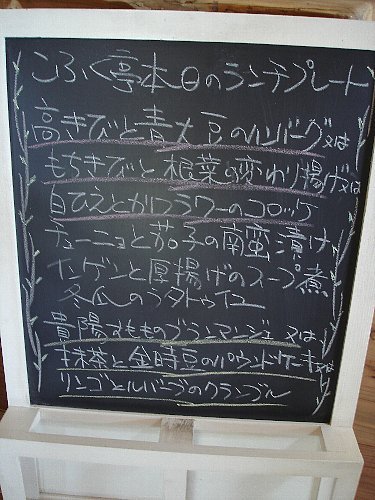 こふく亭本日のランチプレート
高きびと青大豆のハンバーグ又は
もちきびと根菜の変わり揚げ又は
白ひえとカリフラワーのコロッケ
ズッキーニと茄子の南蛮漬け
インゲンと厚揚げのスープ煮
冬瓜のラタトゥイユ
貴陽すもものブランマンジェ又は
抹茶と金時豆のパウンドケーキ又は
リンゴとルバーブのクランブル